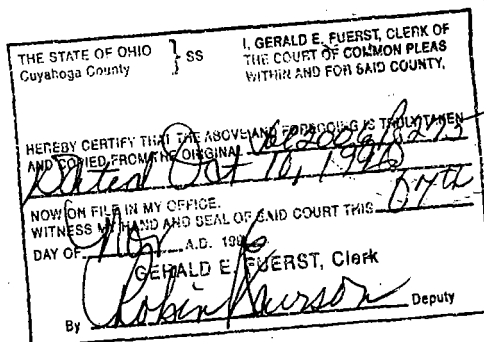 THE STATE OF OHIO } SS I, GERALD E. FUERST, CLERK OF
Cuyahoga County THE COURT OF COMMON PLEAS
WITHIN AND FOR SAID COUNTY,
HEREBY CERTIFY THAT THE ABOVE AND FOREGOING IS TRULY TAKEN
AND COPIED FROM THE ORIGINAL
Dated Oct 10, 1996
NOW ON FILE IN MY OFFICE.
WITNESS MY HAND AND SEAL OF SAID COURT THIS 07th
DAY OF Nov A.D. 1996
GERALD E. FUERST, Clerk
By Robin Deputy